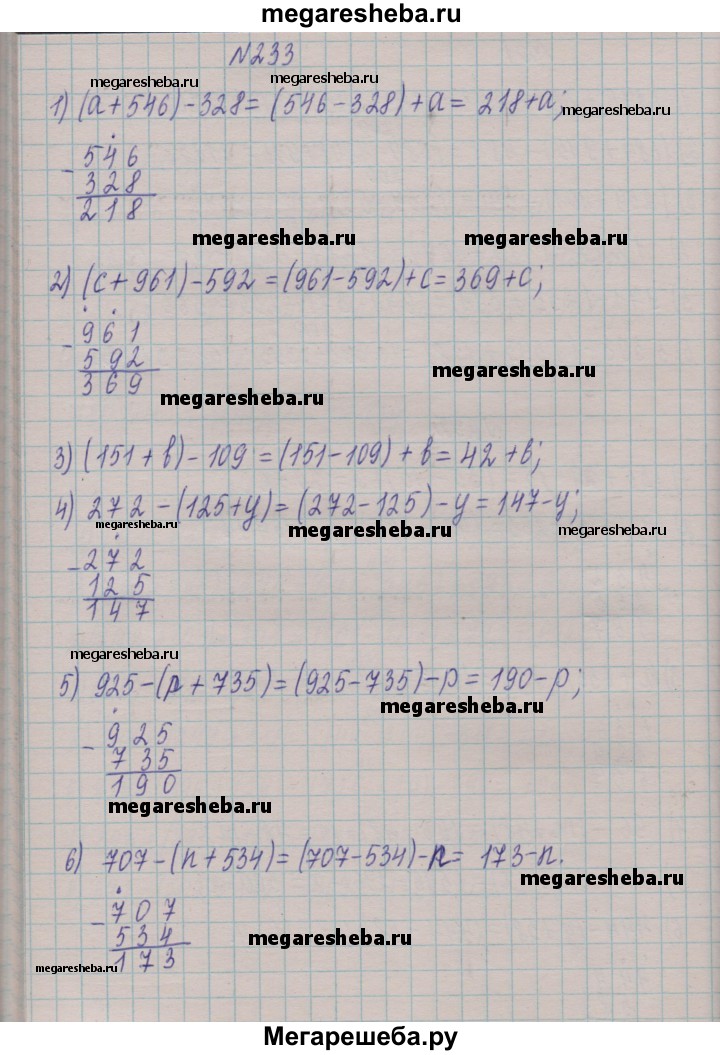 megaresheba.ru
N233
megaresheba.ru
1) (a+546)-328=(546-328)+a= 218+a;
megaresheba.ru
-546
328
218
megaresheba.ru megaresheba.ru
2) (c+961)-592=(961-592)+c=369+c;
-961
592
369
megaresheba.ru
megaresheba.ru
3) (151+b)-109=(151-109)+b=42+b;
4) 272-(125+y)=(272-125)-y=147-y;
megaresheba.ru megaresheba.ru megaresheba.ru
-272
125
147
megaresheba.ru
5) 925-(p+735)=(925-735)-p=190-p;
megaresheba.ru
-925
735
190
megaresheba.ru
6) 707-(n+534)=(707-534)-n= 173-n.
megaresheba.ru
-707
534
173
megaresheba.ru
megaresheba.ru
Мегарешеба.ру